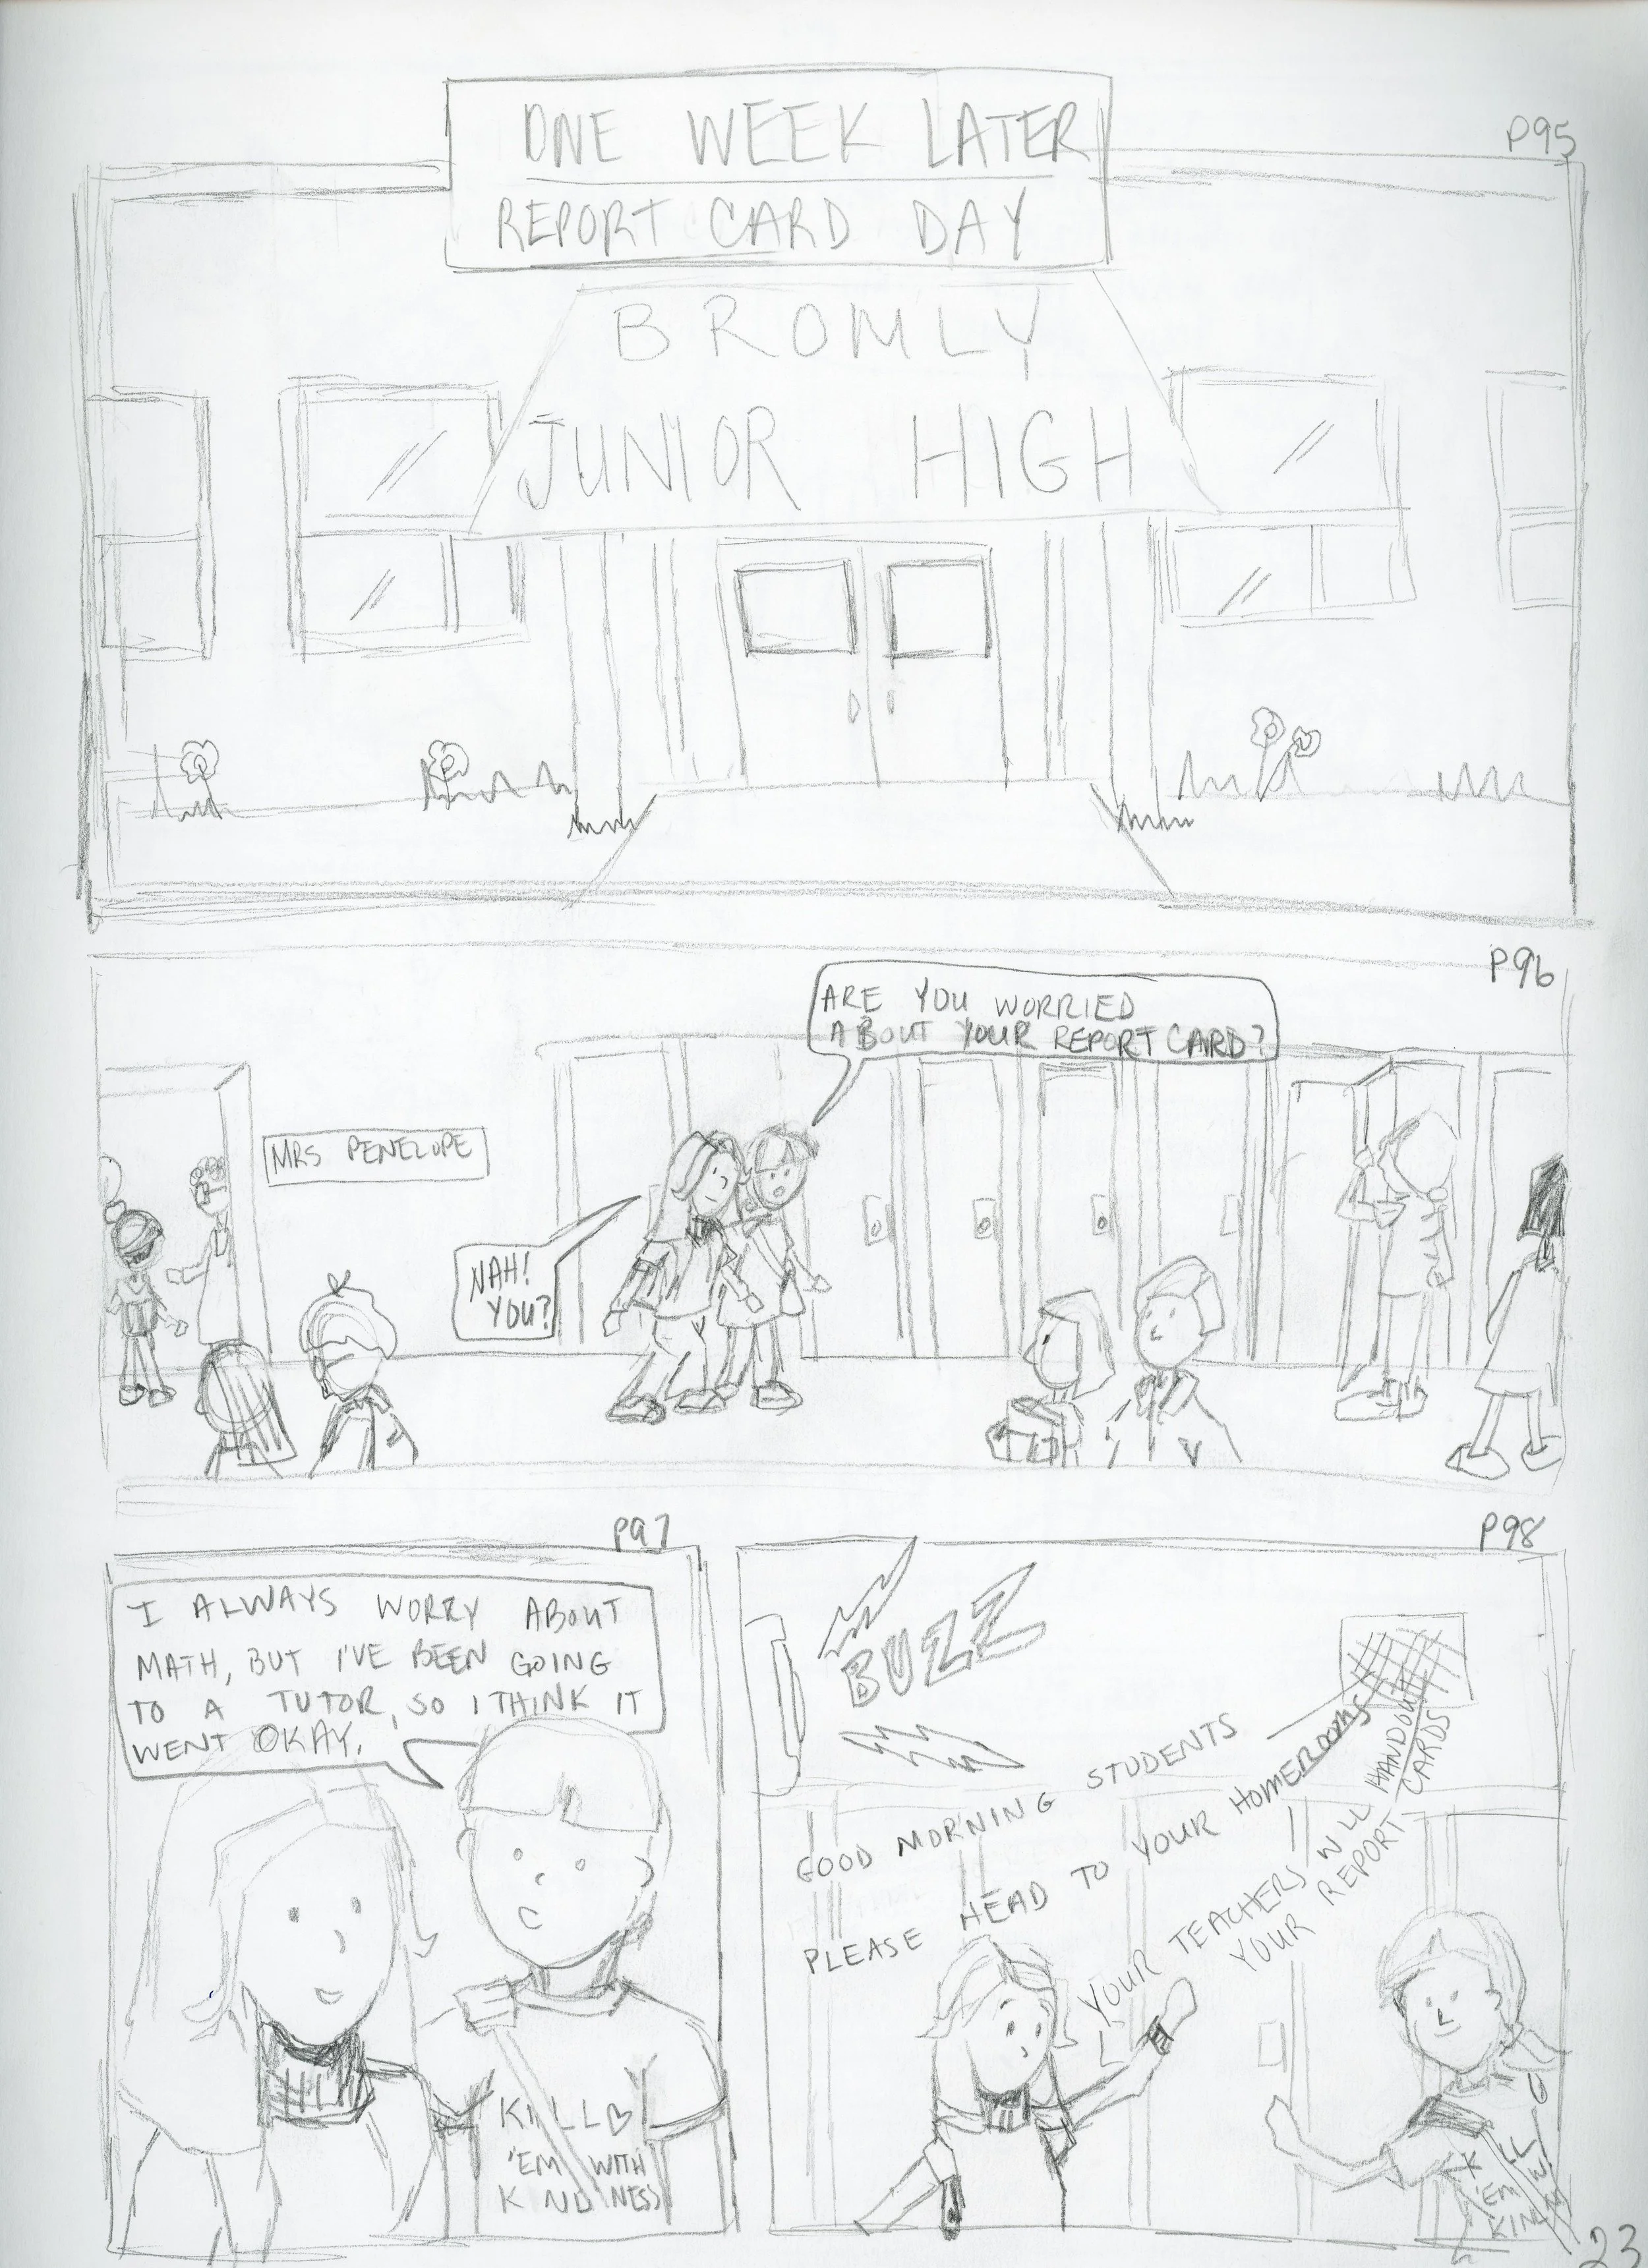 P95
ONE WEEK LATER
REPORT CARD DAY
BROMLY
JUNIOR HIGH
P96
ARE YOU WORRIED
ABOUT YOUR REPORT CARD?
MRS PENELOPE
NAH!
YOU?
P97
I ALWAYS WORRY ABOUT
MATH, BUT I'VE BEEN GOING
TO A TUTOR, SO I THINK IT
WENT OKAY.
KILL
'EM WITH
KINDNESS
P98
BUZZ
GOOD MORNING STUDENTS
PLEASE HEAD TO YOUR HOMEROOMS
YOUR TEACHERS WILL HANDOUT
YOUR REPORT CARDS
K LL
'EM W
KIN
23